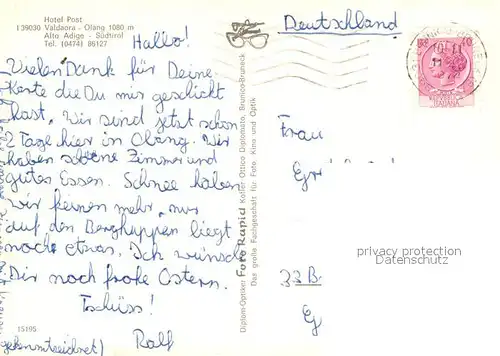 Hotel Post
I 39030 Valdaora - Olang 1080 m
Alto Adige - Südtirol
Tel. (0474) 86127
Hallo!
Vielen Dank für Deine
Karte die Du mir geschickt
hast. Wir sind jetzt schon
2 Tage hier in Olang. Wir
haben schöne Zimmer und
gutes Essen. Schnee haben
wir keinen mehr, nur
auf den Bergkuppen liegt
noch etwas. Ich wünsche
Dir noch frohe Ostern.
Tschüss!
Ralf
15195
Diplom-Optiker Foto Rapid Kofler Ottico Diplomato, Brunico-Bruneck
Das große Fachgeschäft für Foto, Kino und Optik
Deutschland
ITALIANA
Frau
33B
privacy protection
Datenschutz